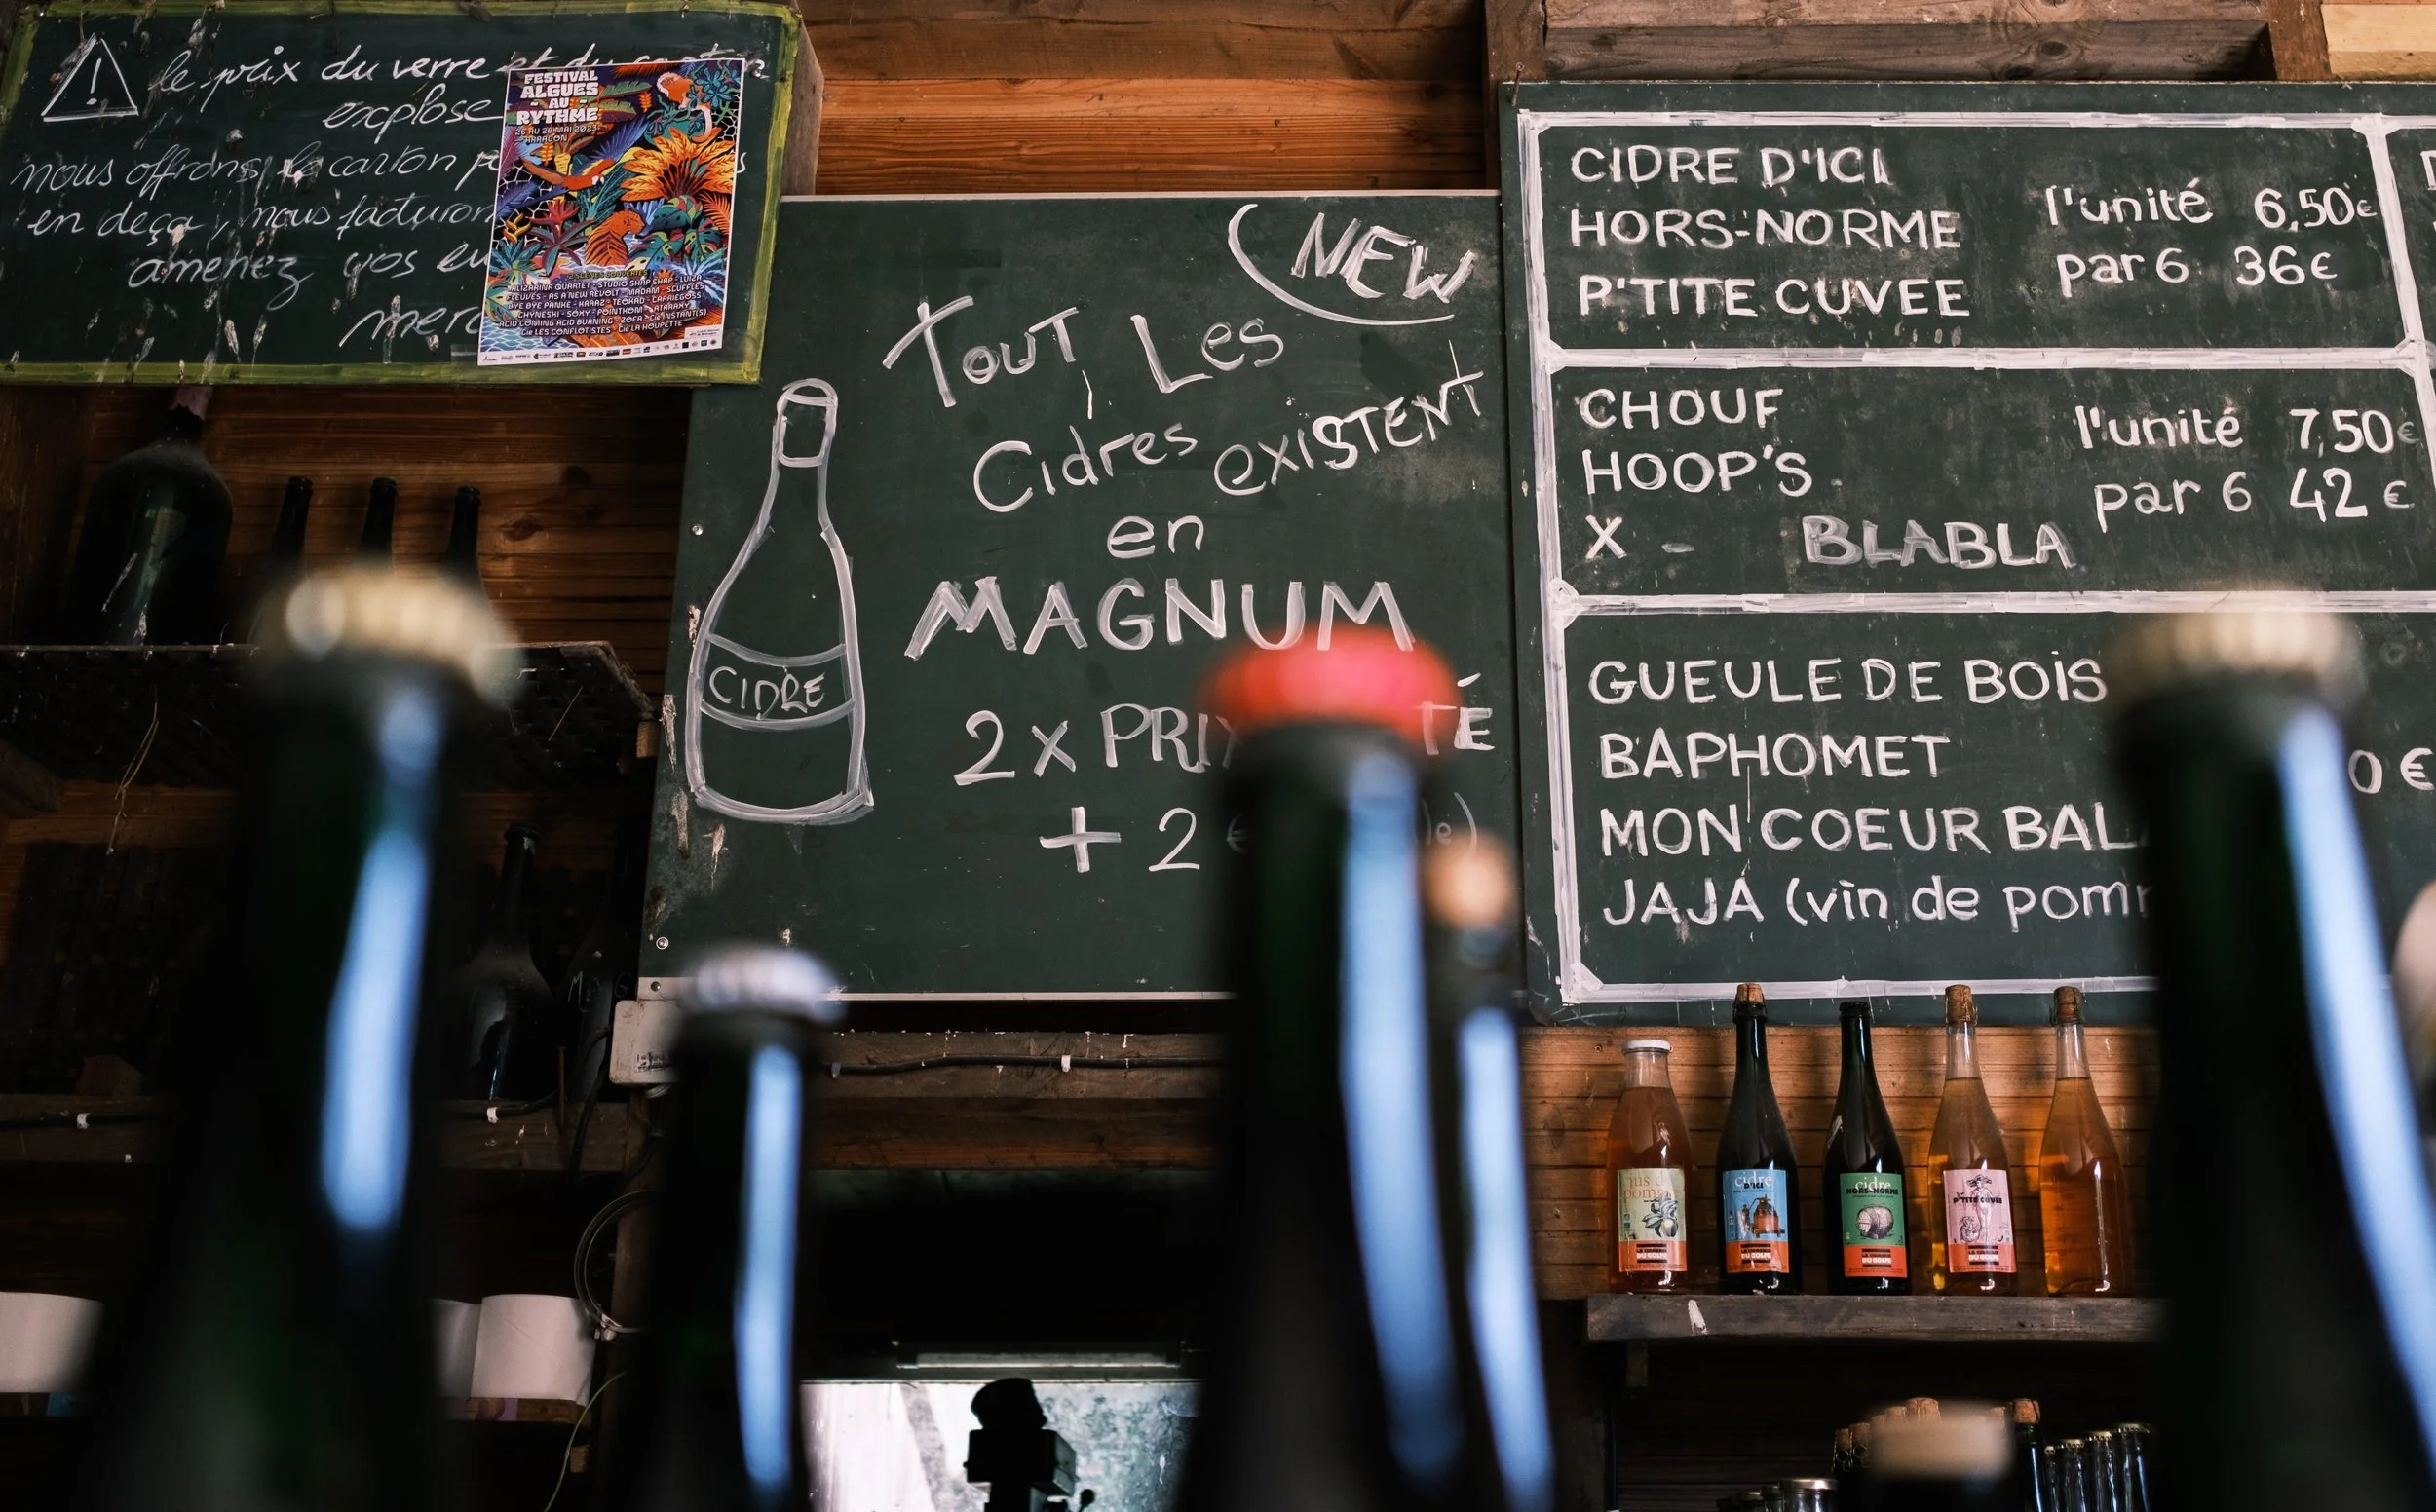 le prix du verre et du carton
explose
nous offrons le carton
en deça, nous
amenez vos
FESTIVAL
ALGUES
AU
RYTHME
26 AU 28 MAI 2023
ARRADON
ALIZARINA QUARTET - STUDIO SHAP SHAP - LUIZA
FLEUVES - AS A NEW REVOLT - MADAM - SCUFFLES
BYE BYE PANKE - KRAAZ - TEOKAD - CARRIEGOSS
CHYNESKI - SOXY - POINTHOM - ATARAXY
ACID COMING ACID BURNING - ZOFA - Cie INSTANT(S)
Cie LES CONFLOTISTES - Cie LA HOUPETTE
NEW
TOUT Les
Cidres EXISTENT
en
MAGNUM
2 x
+ 2
CIDRE
CIDRE D'ICI
HORS-NORME
P'TITE CUVEE
l'unité 6,50€
par 6 36€
CHOUF
HOOP'S
X - BLABLA
l'unité 7,50€
par 6 42€
GUEULE DE BOIS
BAPHOMET
MON COEUR
JAJA (vin de
0 €
jus de
cidre
D'ICI
LA CIDRERIE
DU GOLFE
cidre
HORS-NORME
LA CIDRERIE
DU GOLFE
P'TITE CUVEE
LA CIDRERIE
DU GOLFE